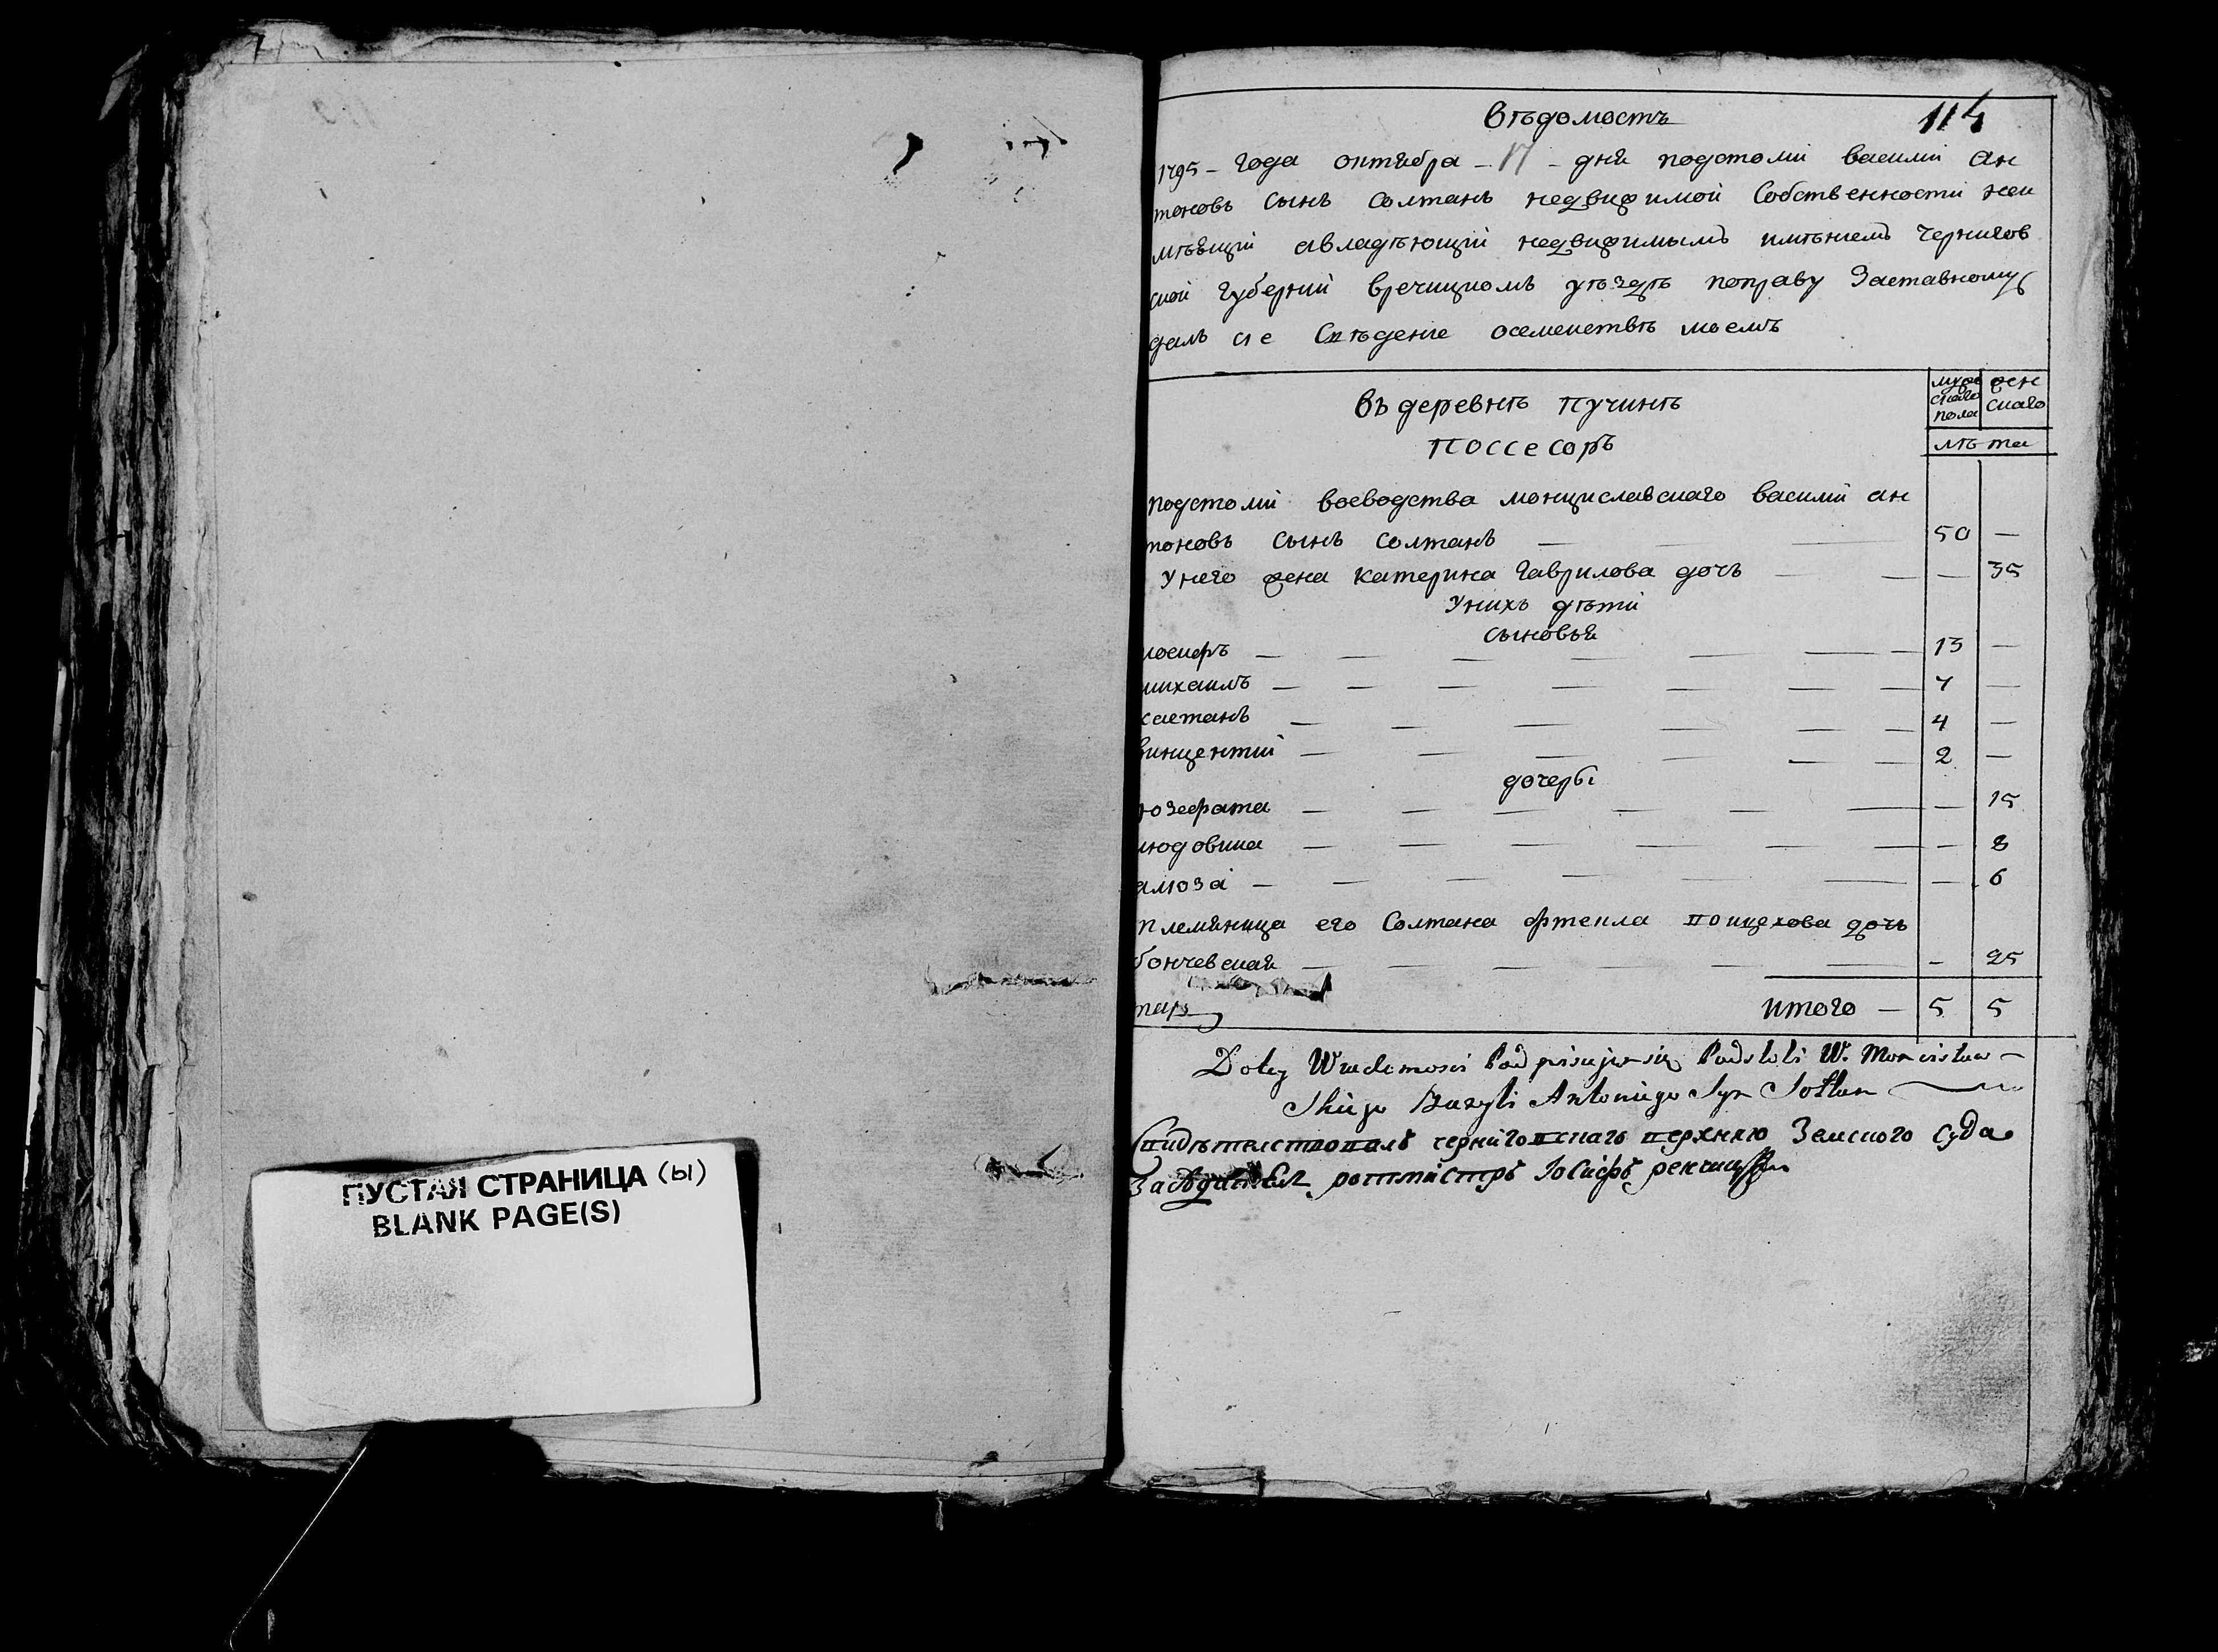 ПУСТАЯ СТРАНИЦА (ы)
BLANK PAGE(S)
114
Вѣдомость
1795 - года октября - 17 - дня подстолій василій ан
тоновъ сынъ солтанъ недвижимой собственности неи
мѣящій авладѣющій недвижимымъ имѣніемъ чернигов
ской губерніи вречицкомъ уѣздѣ поправу заставному
далъ сіе свѣденіе осемействѣ моемъ
въ деревнѣ пучинѣ
поссесоръ
муже
ского
пола
жен
скаго
лѣта
подстолій воеводства мсцислaвскаго василій ан
тоновъ сынъ солтанъ — 50 —
Унего жена катерина гаврилова дочь — — 35
Унихъ дѣти
сыновья
иосифъ — 13 —
михаилъ —
каетанъ — 4 —
винцентій — 2 —
дочери
юзефата — — 15
людовика — — 8
алюза — — 6
племяница его солтана
дочь
бончевская — — 25
итого — 5 5
Do tey Wiadomosci Podpisuje się Podstoli W. Mscisław-
Skiego Bazyli Antoniego Syn Sołtan
Свидѣтелствовалъ черниговскаго верхняго земского суда
Заседатель ротмистръ Иосифъ